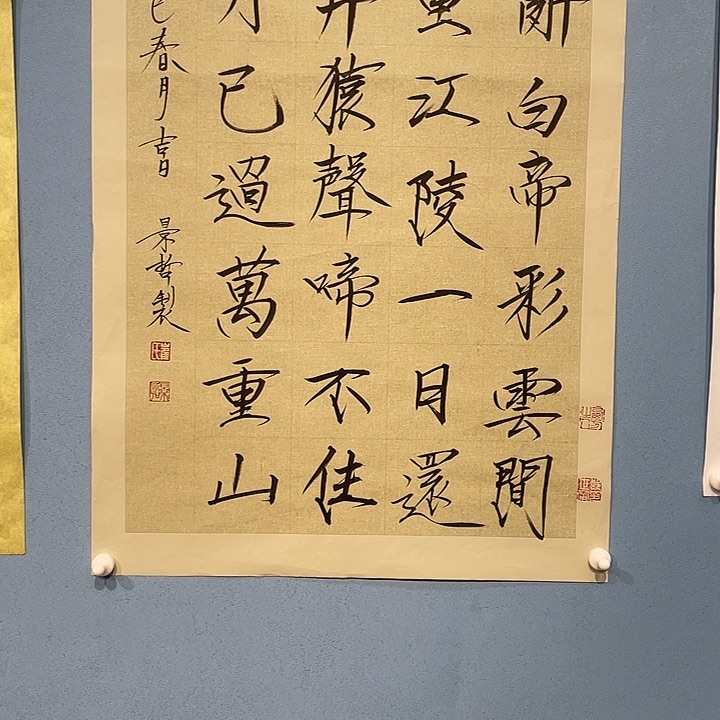 白帝彩雲間
江陵一日還
猿聲啼不住
已過萬重山
春月吉日 景哲製